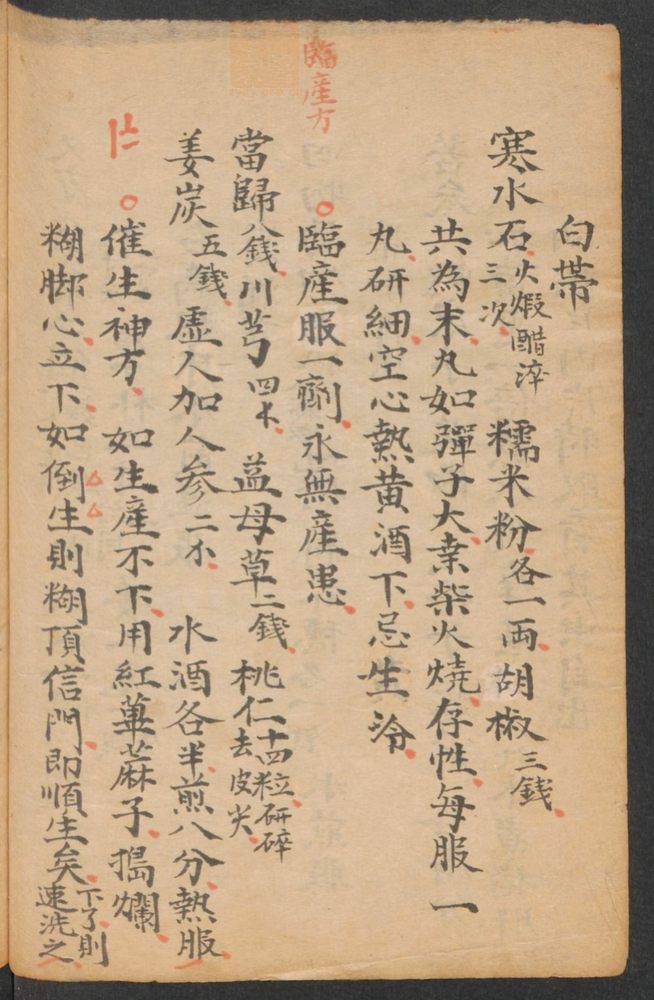 白帶
寒水石火煅醋淬三次 糯米粉各一両胡椒三錢
共為末丸如彈子大桒柴火燒存性每服一
丸研細空心熱黄酒下忌生冷
臨產方
臨產服一劑永無產患
當歸八錢川芎四 益母草二錢桃仁十四粒研碎去皮尖
姜炭五錢 虛人加人参二 水酒各半煎八分熱服
催生神方如生產不下用紅蓖蔴子搗爛
糊脚心立下如倒生則糊頂信門即順生矣下了則速洗之